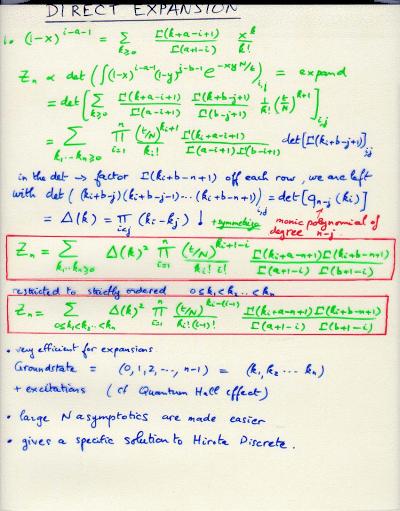 DIRECT EXPANSION
i. (1-x)^{i-a-1} = Σ_{k≥0} Γ(k+a-i+1)/Γ(a+1-i) x^k/k!
Z_n ∝ det(∫∫(1-x)^{i-a-1}(1-y)^{j-b-1} e^{-xyN/t})_{i,j} = expand
= det[Σ_{k≥0} Γ(k+a-i+1)/Γ(a-i+1) Γ(k+b-j+1)/Γ(b-j+1) 1/k! (t/N)^{k+1}]_{i,j}
= Σ_{k_1,..k_n≥0} ∏_{i=1}^{n} (t/N)^{k_i+1}/k_i! Γ(k_i+a-i+1)/Γ(a-i+1)Γ(b-i+1) det[Γ(k_i+b-j+1)]_{i,j}
in the det → factor Γ(k_i+b-n+1) off each row, we are left
with det((k_i+b-j)(k_i+b-j-1)...(k_i+b-n+1))_{i,j} = det[q_{n-j}(k_i)]
= Δ(k) = ∏_{i<j}(k_i-k_j) ↓ + symmetrize monic polynomial of degree n-j
Z_n = Σ_{k_1,..k_n≥0} Δ(k)² ∏_{i=1}^{n} (t/N)^{k_i+1-i}/k_i! i! Γ(k_i+a-n+1)Γ(k_i+b-n+1)/Γ(a+1-i) Γ(b+1-i)
restricted to strictly ordered 0≤k_1<k_2..<k_n
Z_n = Σ_{0≤k_1<k_2..<k_n} Δ(k)² ∏_{i=1}^{n} (t/N)^{k_i-(i-1)}/k_i!(i-1)! Γ(k_i+a-n+1)Γ(k_i+b-n+1)/Γ(a+1-i) Γ(b+1-i)
• very efficient for expansions
Groundstate = (0,1,2,..., n-1) = (k_1,k_2...k_n)
+ excitations (cf Quantum Hall effect)
• large N asymptotics are made easier
• gives a specific solution to Hirota Discrete.